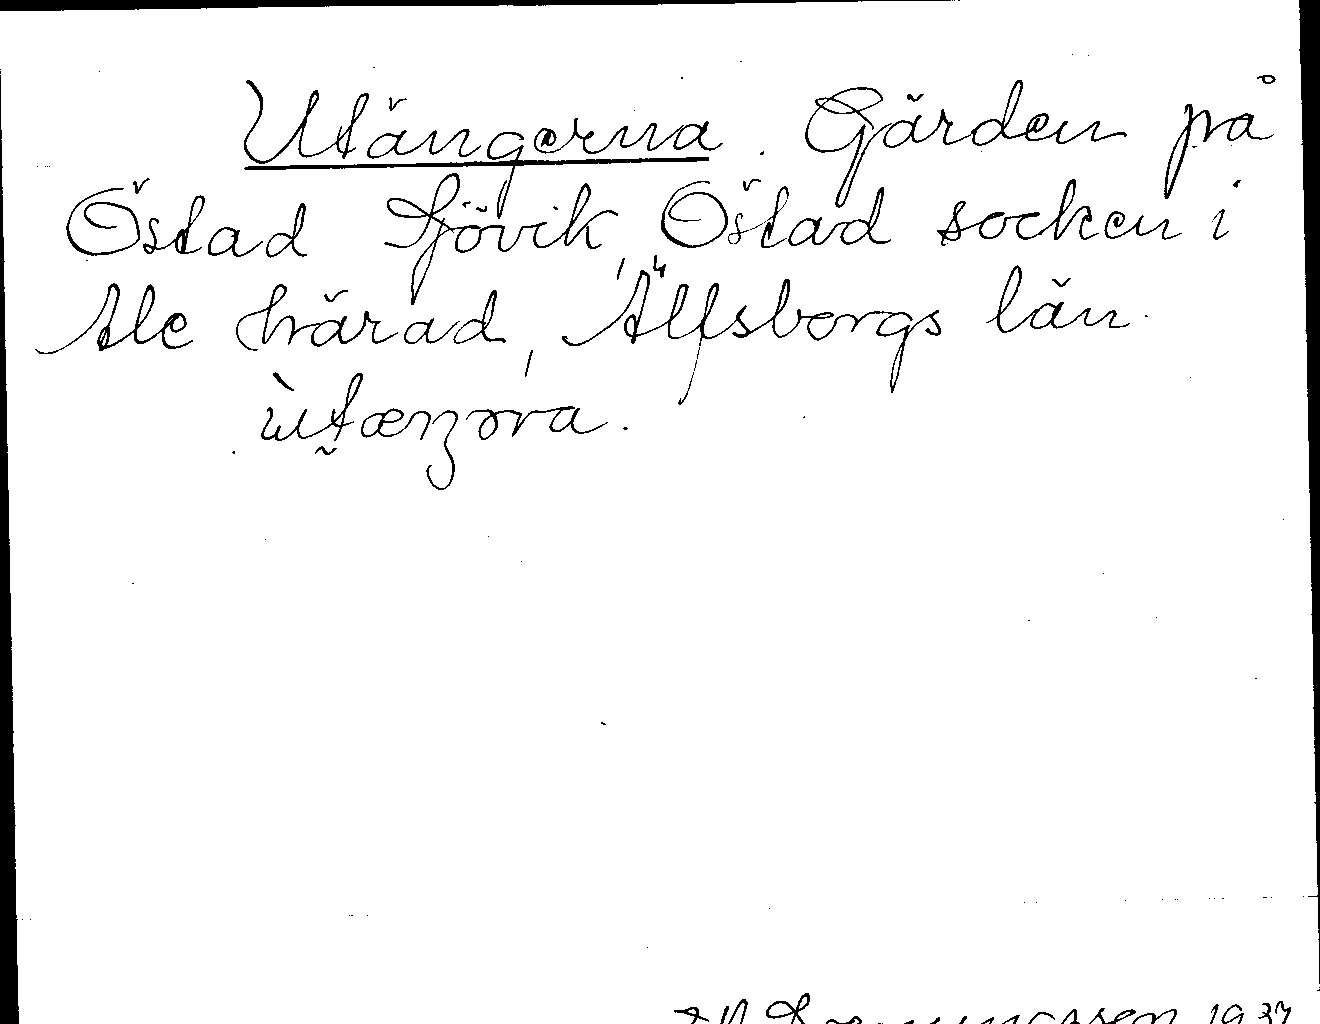 Utängerna. Gärden på
Östad Sjövik, Östad socken i
Ale härad, Älfsborgs län.
ùtæŋəra.
1937